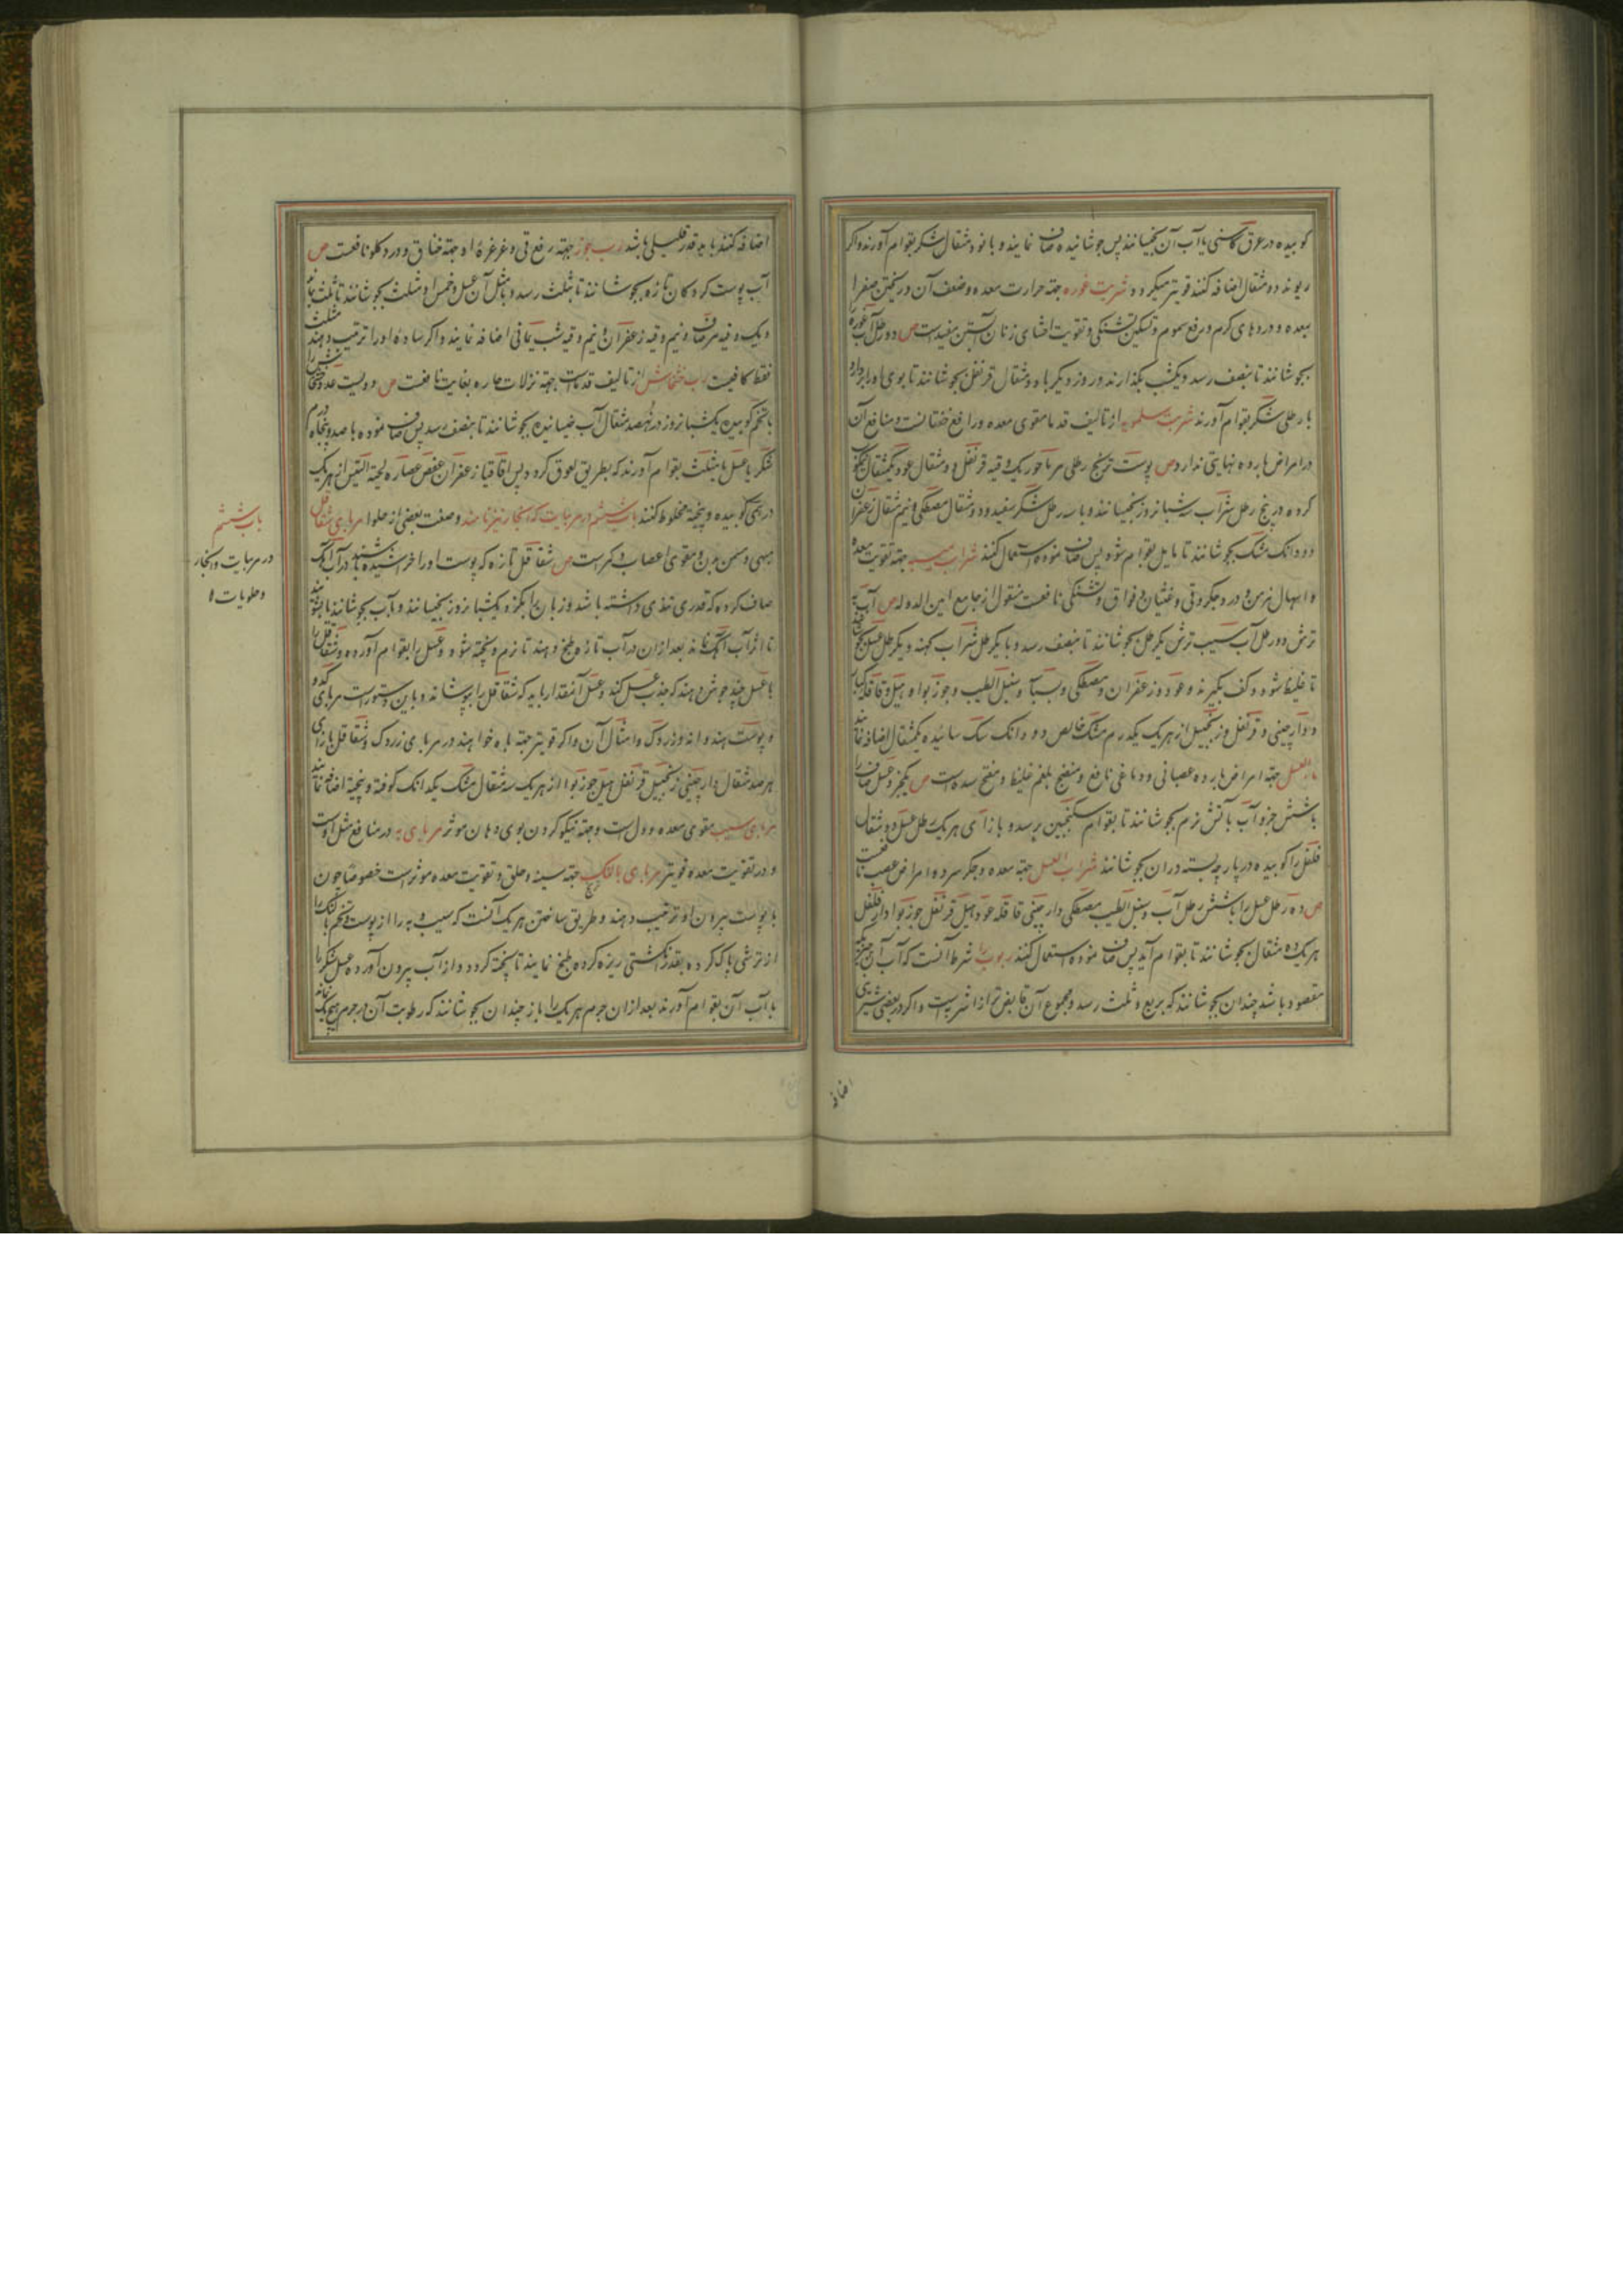 کوبیده در عرق کاسنی یا آب آن بخیسانند پس جوشانیده صاف نمایند و با نود مثقال شکر بقوام آورند و اگر
ریوند دو مثقال اضافه کنند قویتر میگردد شربت غوره جهة حرارت معده و ضعف آن و ریختن صفرا
بمعده و دردهای گرم و رفع سموم و تسکین تشنگی و تقویت احشای زنان آبستن مفیدست ص دو رطل آب غوره
بجوشانند تا بنصف رسد و یکشب بگذارند و روز دیگر با دو مثقال قرنفل بجوشانند تا بوی او را بردارد
با رطلی شکر بقوام آورند شربت سلمویه از تالیف قدما مقوی معده و رافع خفقانست و منافع آن
در امراض بارده نهایتی ندارد ص پوست ترنج رطلی مرماحور یک وقیه قرنفل دو مثقال عود یکمثقال نیکو
کرده در پنج رطل شراب سه شبانروز بخیسانند و با سه رطل شکر سفید و دو مثقال مصطکی و نیم مثقال زعفران
و دو دانک مشک بجوشانند تا مایل بقوام شود پس صاف نموده استعمال کنند شراب سیب جهة تقویت معده
و اسهال مزمن و درد جگر و قی و غثیان و فواق و تشنگی نافعست منقول از جامع امین الدوله ص آب به
ترش دو رطل آب سیب ترش یکرطل بجوشانند تا بنصف رسد و با یکرطل شراب کهنه و یکرطل عسل بجوشانند
تا غلیظ شود و کف بگیرند و عود و زعفران و مصطکی و بسباسه و سنبل الطیب و جوز بوا و هیل و قاقله کبار
و دارچینی و قرنفل و زنجبیل از هر یک یکدرم مشک خالص دو دانک سک سائیده یکمثقال اضافه نمایند
ماء العسل جهة امراض بارده عصبانی و دماغی نافع و منضج بلغم غلیظ و مفتح سددست ص یکجزو عسل صاف را
با شش جزو آب بآتش نرم بجوشانند تا بقوام سکنجبین برسد و بازای هر یک رطل عسل دو مثقال
فلفل را کوبیده در پارچه بسته در ان بجوشانند شراب العسل جهة معده و جگر سرد و امراض عصب نافعست
ص ده رطل عسل را با شش رطل آب و سنبل الطیب مصطکی دارچینی قاقله عود هیل قرنفل جوز بوا دار فلفل
هر یک ده مثقال بجوشانند تا بقوام آید پس صاف نموده استعمال کنند ربوب را شرط آنست که آب آن چیز که
مقصود باشد چندان بجوشانند که بربع و ثلث رسد و مجموع آن قابض تر از اشربه است و اگر در بعضی شیرینی
اضافه
اضافه کنند باید قدر قلیلی باشد رب جوز جهة رفع قی و غرغرهٔ او جهة خناق و درد گلو نافعست ص
آب پوست گردکان تازه بجوشانند تا بثلث رسد و با مثل آن عسل و خمس او مثلث بجوشانند تا ثلث بماند
و یک وقیه مر صاف و نیم وقیه زعفران و نیم وقیه شب یمانی اضافه نمایند و اگر سادهٔ او را ترتیب دهند مثلث
فقط کافیست رب خشخاش از تالیف قدماست جهة نزلات حاره بغایت نافعست ص دویست عدد خشخاش را
با تخم کوبیده یکشبانروز در نهصد مثقال آب خیسانیده بجوشانند تا بنصف رسد پس صاف نموده با صد و پنجاه درم
شکر یا عسل یا مثلث بقوام آورند که بطریق لعوق گردد پس اقاقیا زعفران عفص عصاره لحیة التیس از هر یک
درهمی کوبیده و بیخته مخلوط کنند باب ششم در مربیات که انبجات نیز نامند و صفت بعضی از حلوا مربای شقاقل
مبهی و مسمن بدن و مقوی اعصاب و کمرست ص شقاقل تازه که پوست او را خراشیده باشند در آب آهک
صاف کرده که قدری تندی داشته باشد و زبان را بگزد یکشبانروز بخیسانند و بآب بجوشانند یا بشویند
تا اثر آب آهک نماند بعد از ان در آب تازه طبخ دهند تا نرم و پخته شود و عسل را بقوام آورده و شقاقل را
با عسل چند جوش دهند که جذب عسل کند و عسل آنمقدار باید که شقاقل را بپوشاند و باین دستورست مربای کدو
و پوست هندوانه و زردک و امثال آن و اگر قویتر جهة باه خواهند در مربای زردک و شقاقل بازای
هر صد مثقال دارچینی زنجبیل قرنفل هیل جوز بوا از هر یک سه مثقال مشک یکدانک کوفته و بیخته اضافه نمایند
مربای سیب مقوی معده و دل است و جهة نیکو کردن بوی دهان موثر مربای به در منافع مثل اوست
و در تقویت معده قویتر مربای بالنک جهة سینه و حلق و تقویت معده موثرست خصوصا چون
با پوست بیرون او ترتیب دهند و طریق ساختن هر یک آنست که سیب و به را از پوست و تخم و بالنک را
از ترشی پاک کرده بقدر انگشتی ریزه کرده طبخ نمایند تا پخته گردد و از آب بیرون آورده عسل یا شکر را
با آب آن بقوام آورند بعد از ان جرم هر یک را باز چندان بجوشانند که رطوبت آن در جرم هیچیک نماند
باب ششم
در مربیات و انبجات
و حلویات